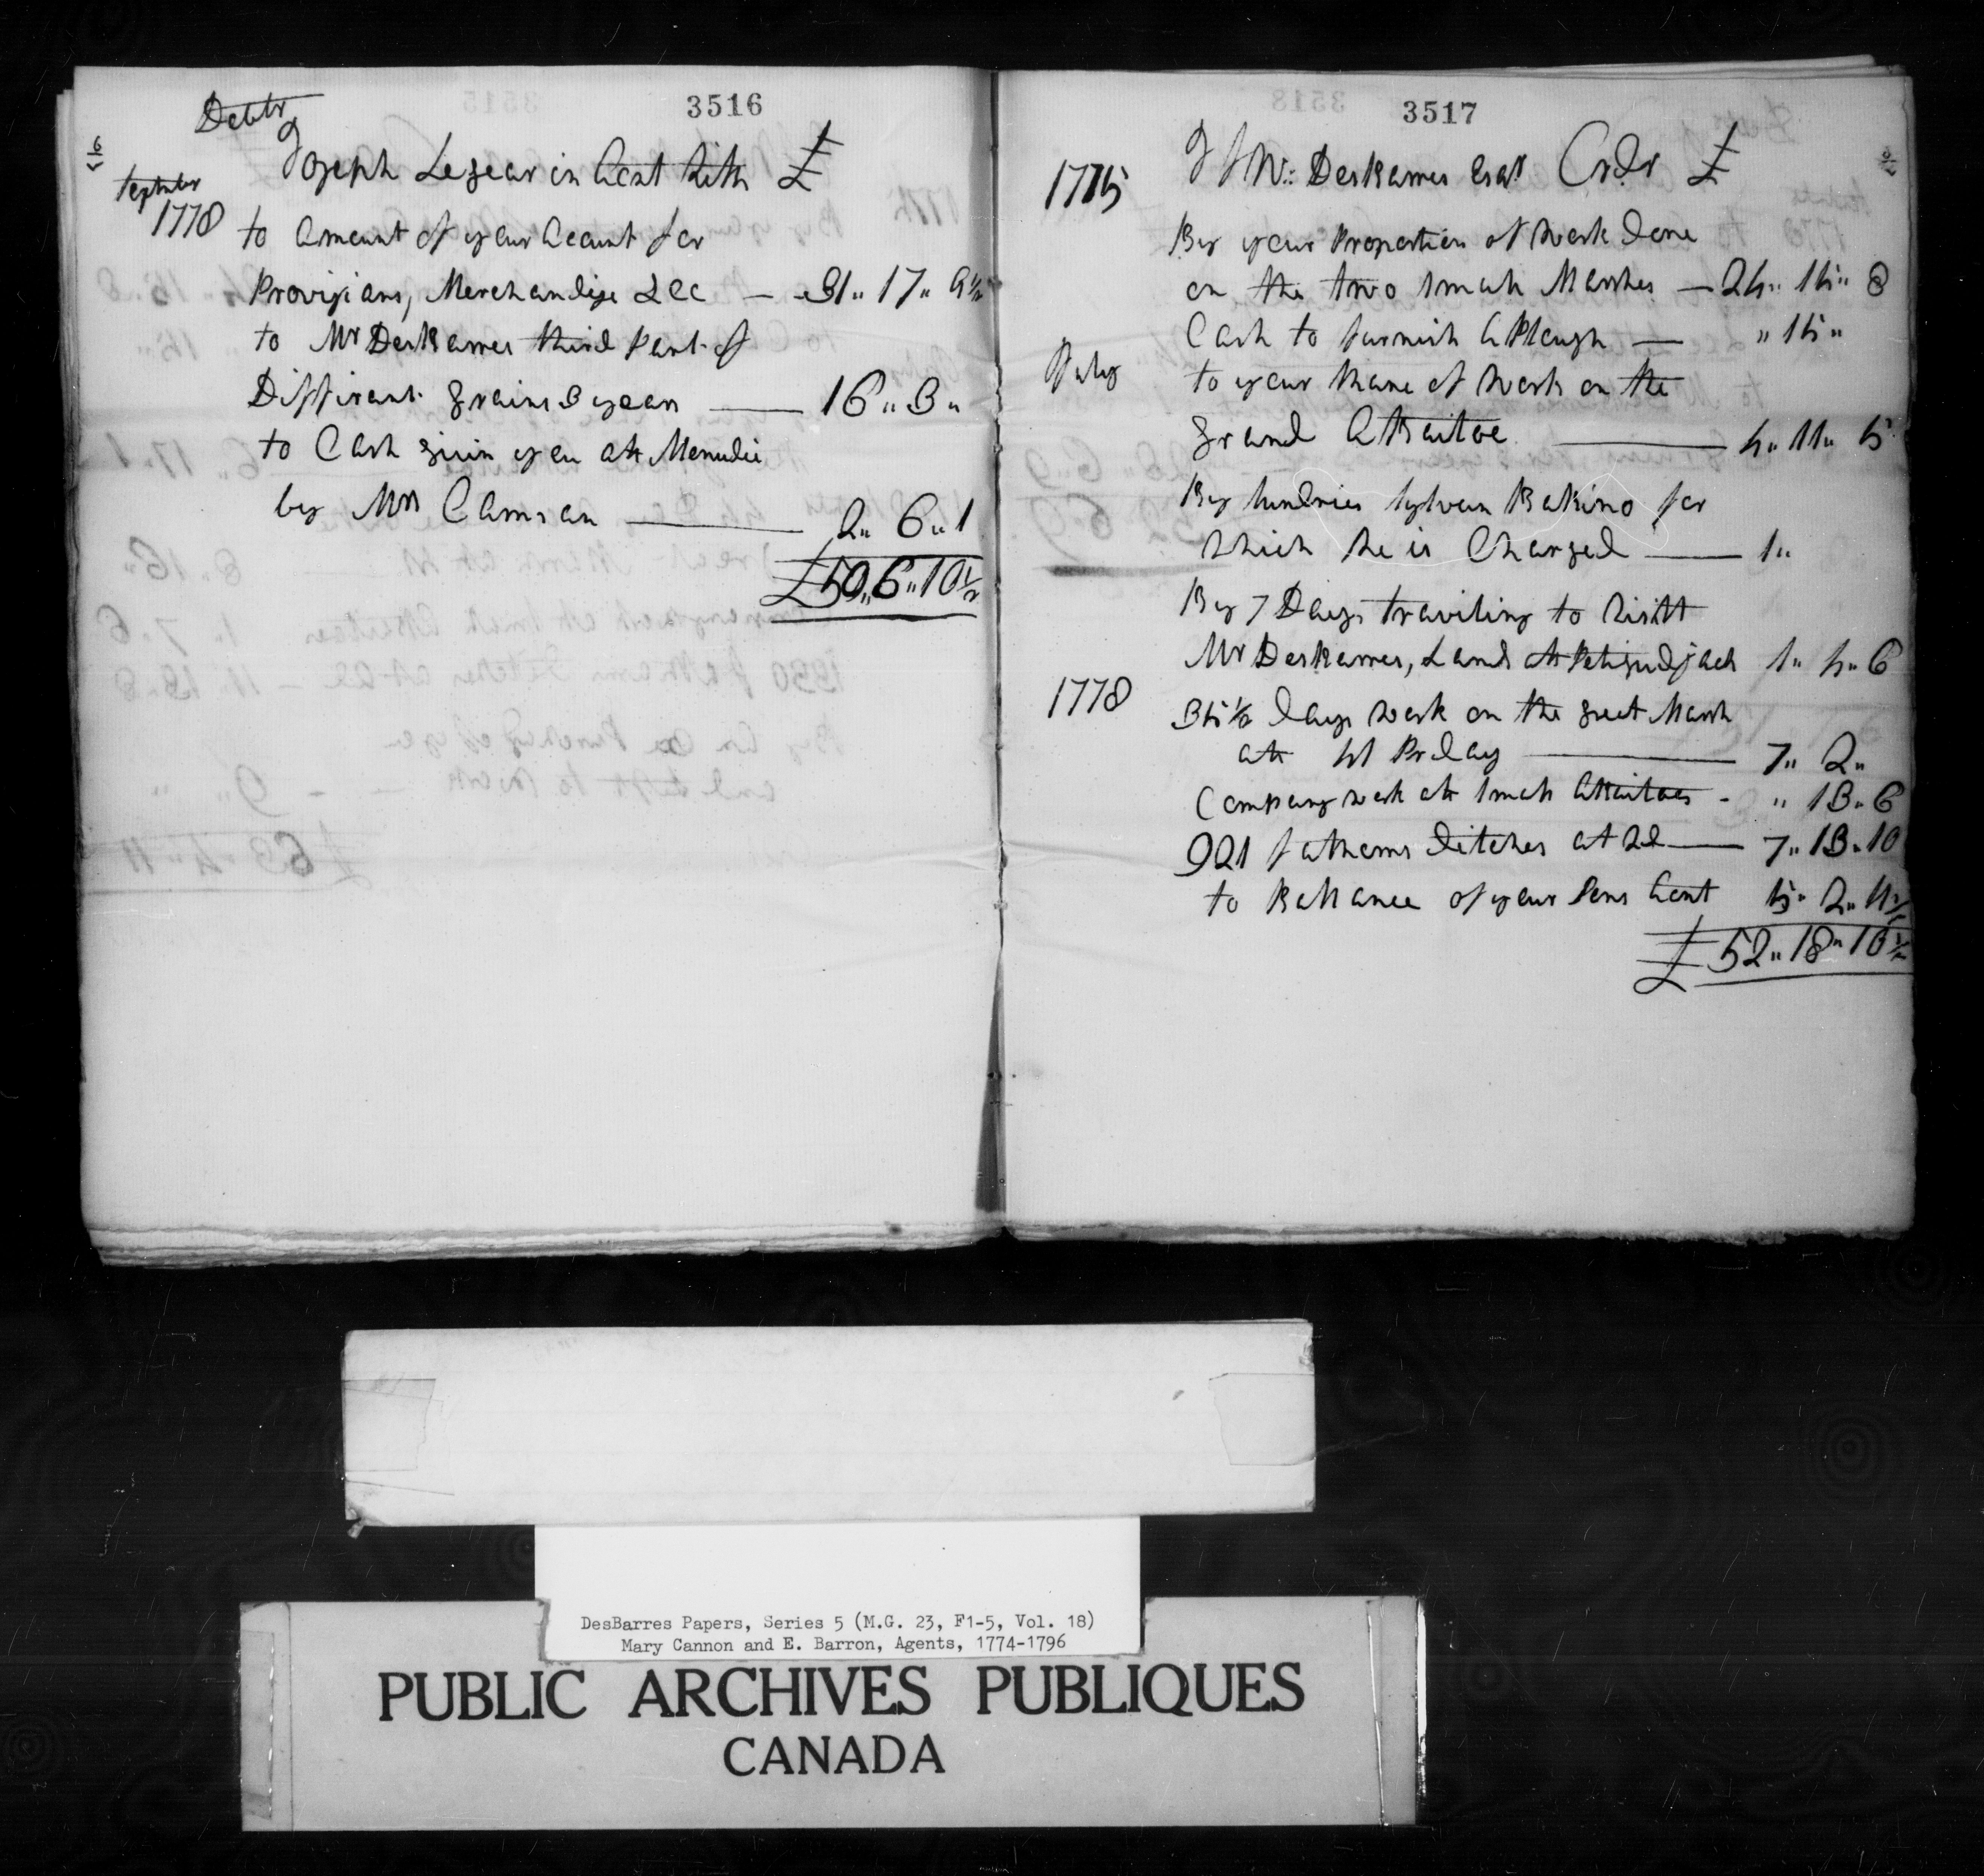 3516
Debtr
6
September
1778
Joseph Legear in Acnt With £
to Amount of your Acount for
Provisians, Merchandise &cc — 31,, 17,, 9½
to Mr DesBarres third Part of
Diffirant grains 3 years — 16,, 3,,
to Cash givin you att Menudie
by Mrs Cannan — 2,, 6,, 1
£50,, 6,, 10½
3517
1775
J F W: DesBarres Esqr Crdr £
By your Propartian of Work done
on the two Smah Marshes — 24,, 15,, 8
Cash to furnish A Plough — ,, 15,,
July
to your Share of Work on the
grand Attaitoe — 4,, 11,, 5
By Sundries Sylvan Babino for
Which he is Charged — 1,,
By 7 Days traviling to Visitt
Mr DesBarres, Lands att Petigudjack 1,, 4,, 6
1778
35½ days Work on the greet Marsh
att 4s Pr day — 7,, 2,,
Company work att Smah Attaitoes - ,, 13,, 6
921 fathams ditches at 2d — 7,, 13,, 10
to Ballance of your Sons Acnt 5,, 2,, 11½
£ 52,, 18,, 10½
DesBarres Papers, Series 5 (M.G. 23, F1-5, Vol. 18)
Mary Cannon and E. Barron, Agents, 1774-1796
PUBLIC ARCHIVES PUBLIQUES
CANADA